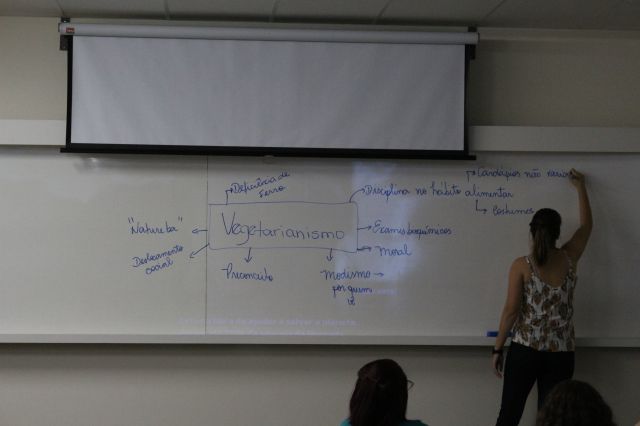 Cardápios não
Deficiência de
ferro
Disciplina no hábito alimentar
Costumes
"Natureba"
Vegetarianismo
Exames bioquímicos
Deslocamento
social
moral
Preconceito
Modismo
por quem
vê
salvar o planeta